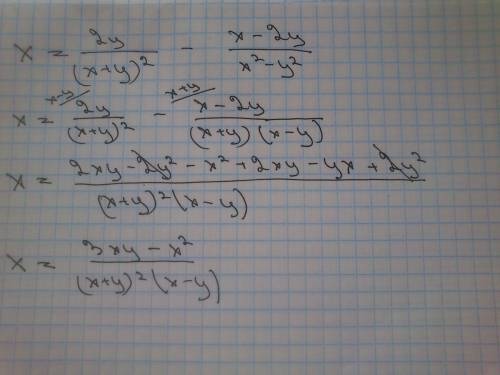 x = 2y/(x+y)² - x-2y/x²-y²
x = x-y/ 2y/(x+y)² - x+y/ x-2y/(x+y)(x-y)
x = 2xy-2y²-x²+2xy-yx+2y²/(x+y)²(x-y)
x = 3xy-x²/(x+y)²(x-y)